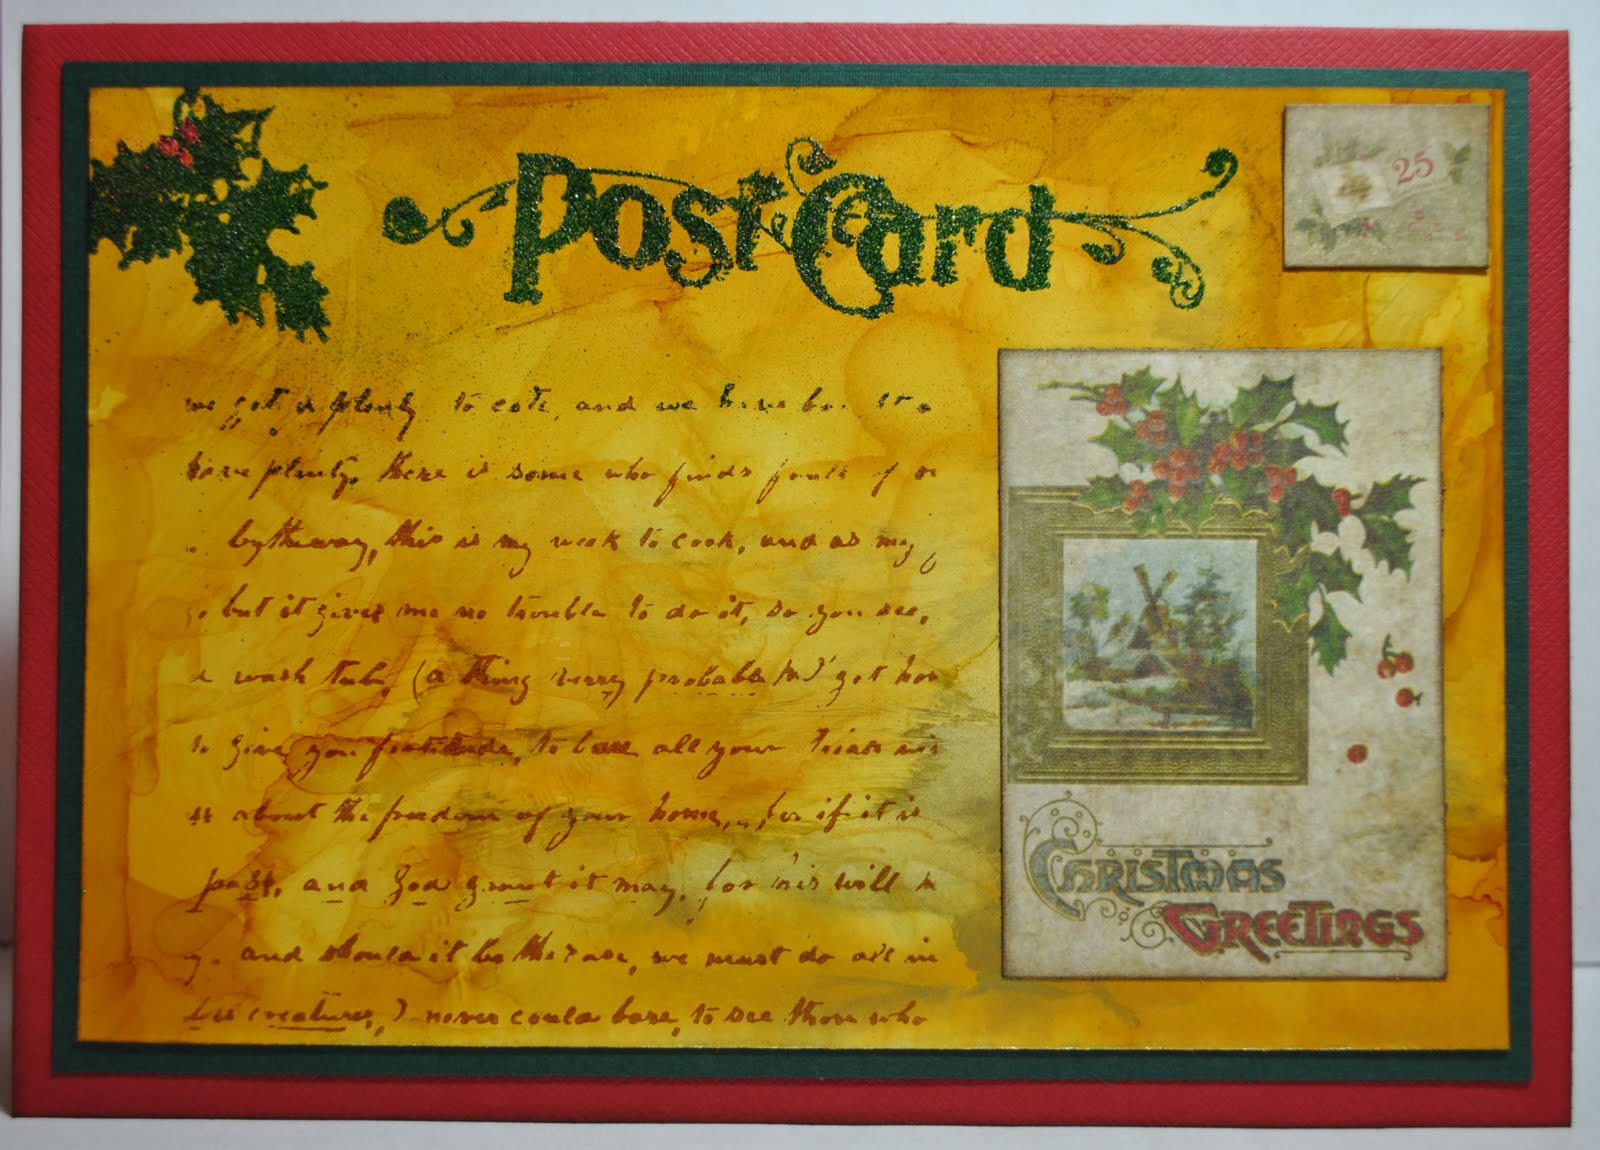 Post Card
25
we got a plenty to eate, and we have
have plenty, there is some who finds
bytheway, this is my week to cook, and as my
but it gives me no trouble to do it, so you see,
wash tub, (a thing verry probable
to give you fortitude, to bare all your
about the freedom of your home, for if it is
past, and God grant it may, for his will
and should it be the case, we must do all in
creatures, I never could bare, to see those who
Christmas
Greetings